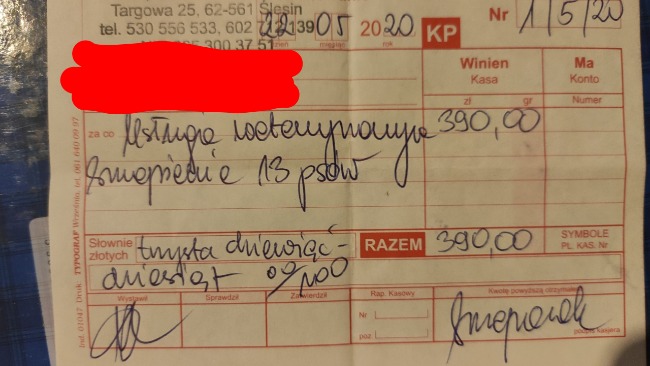 Targowa 25, 62-561 Ślesin
tel. 530 556 533, 602 139
22 05 2020 KP Nr 1/5/20
dzień miesiąc rok
300 37 51
Winien Ma
Kasa Konto
zł gr Numer
za co Usługa weterynaryjna 390,00
13 psów
Słownie złotych trzysta dziewięć- RAZEM 390,00 SYMBOLE PL. KAS. Nr
dziesiąt 00/100
Wystawił Sprawdził Zatwierdził Rap. Kasowy Kwotę powyższą otrzymałem
Nr
poz.
podpis kasjera
Ind. 01047 Druk TYPOGRAF Września, tel. 061 640 09 97